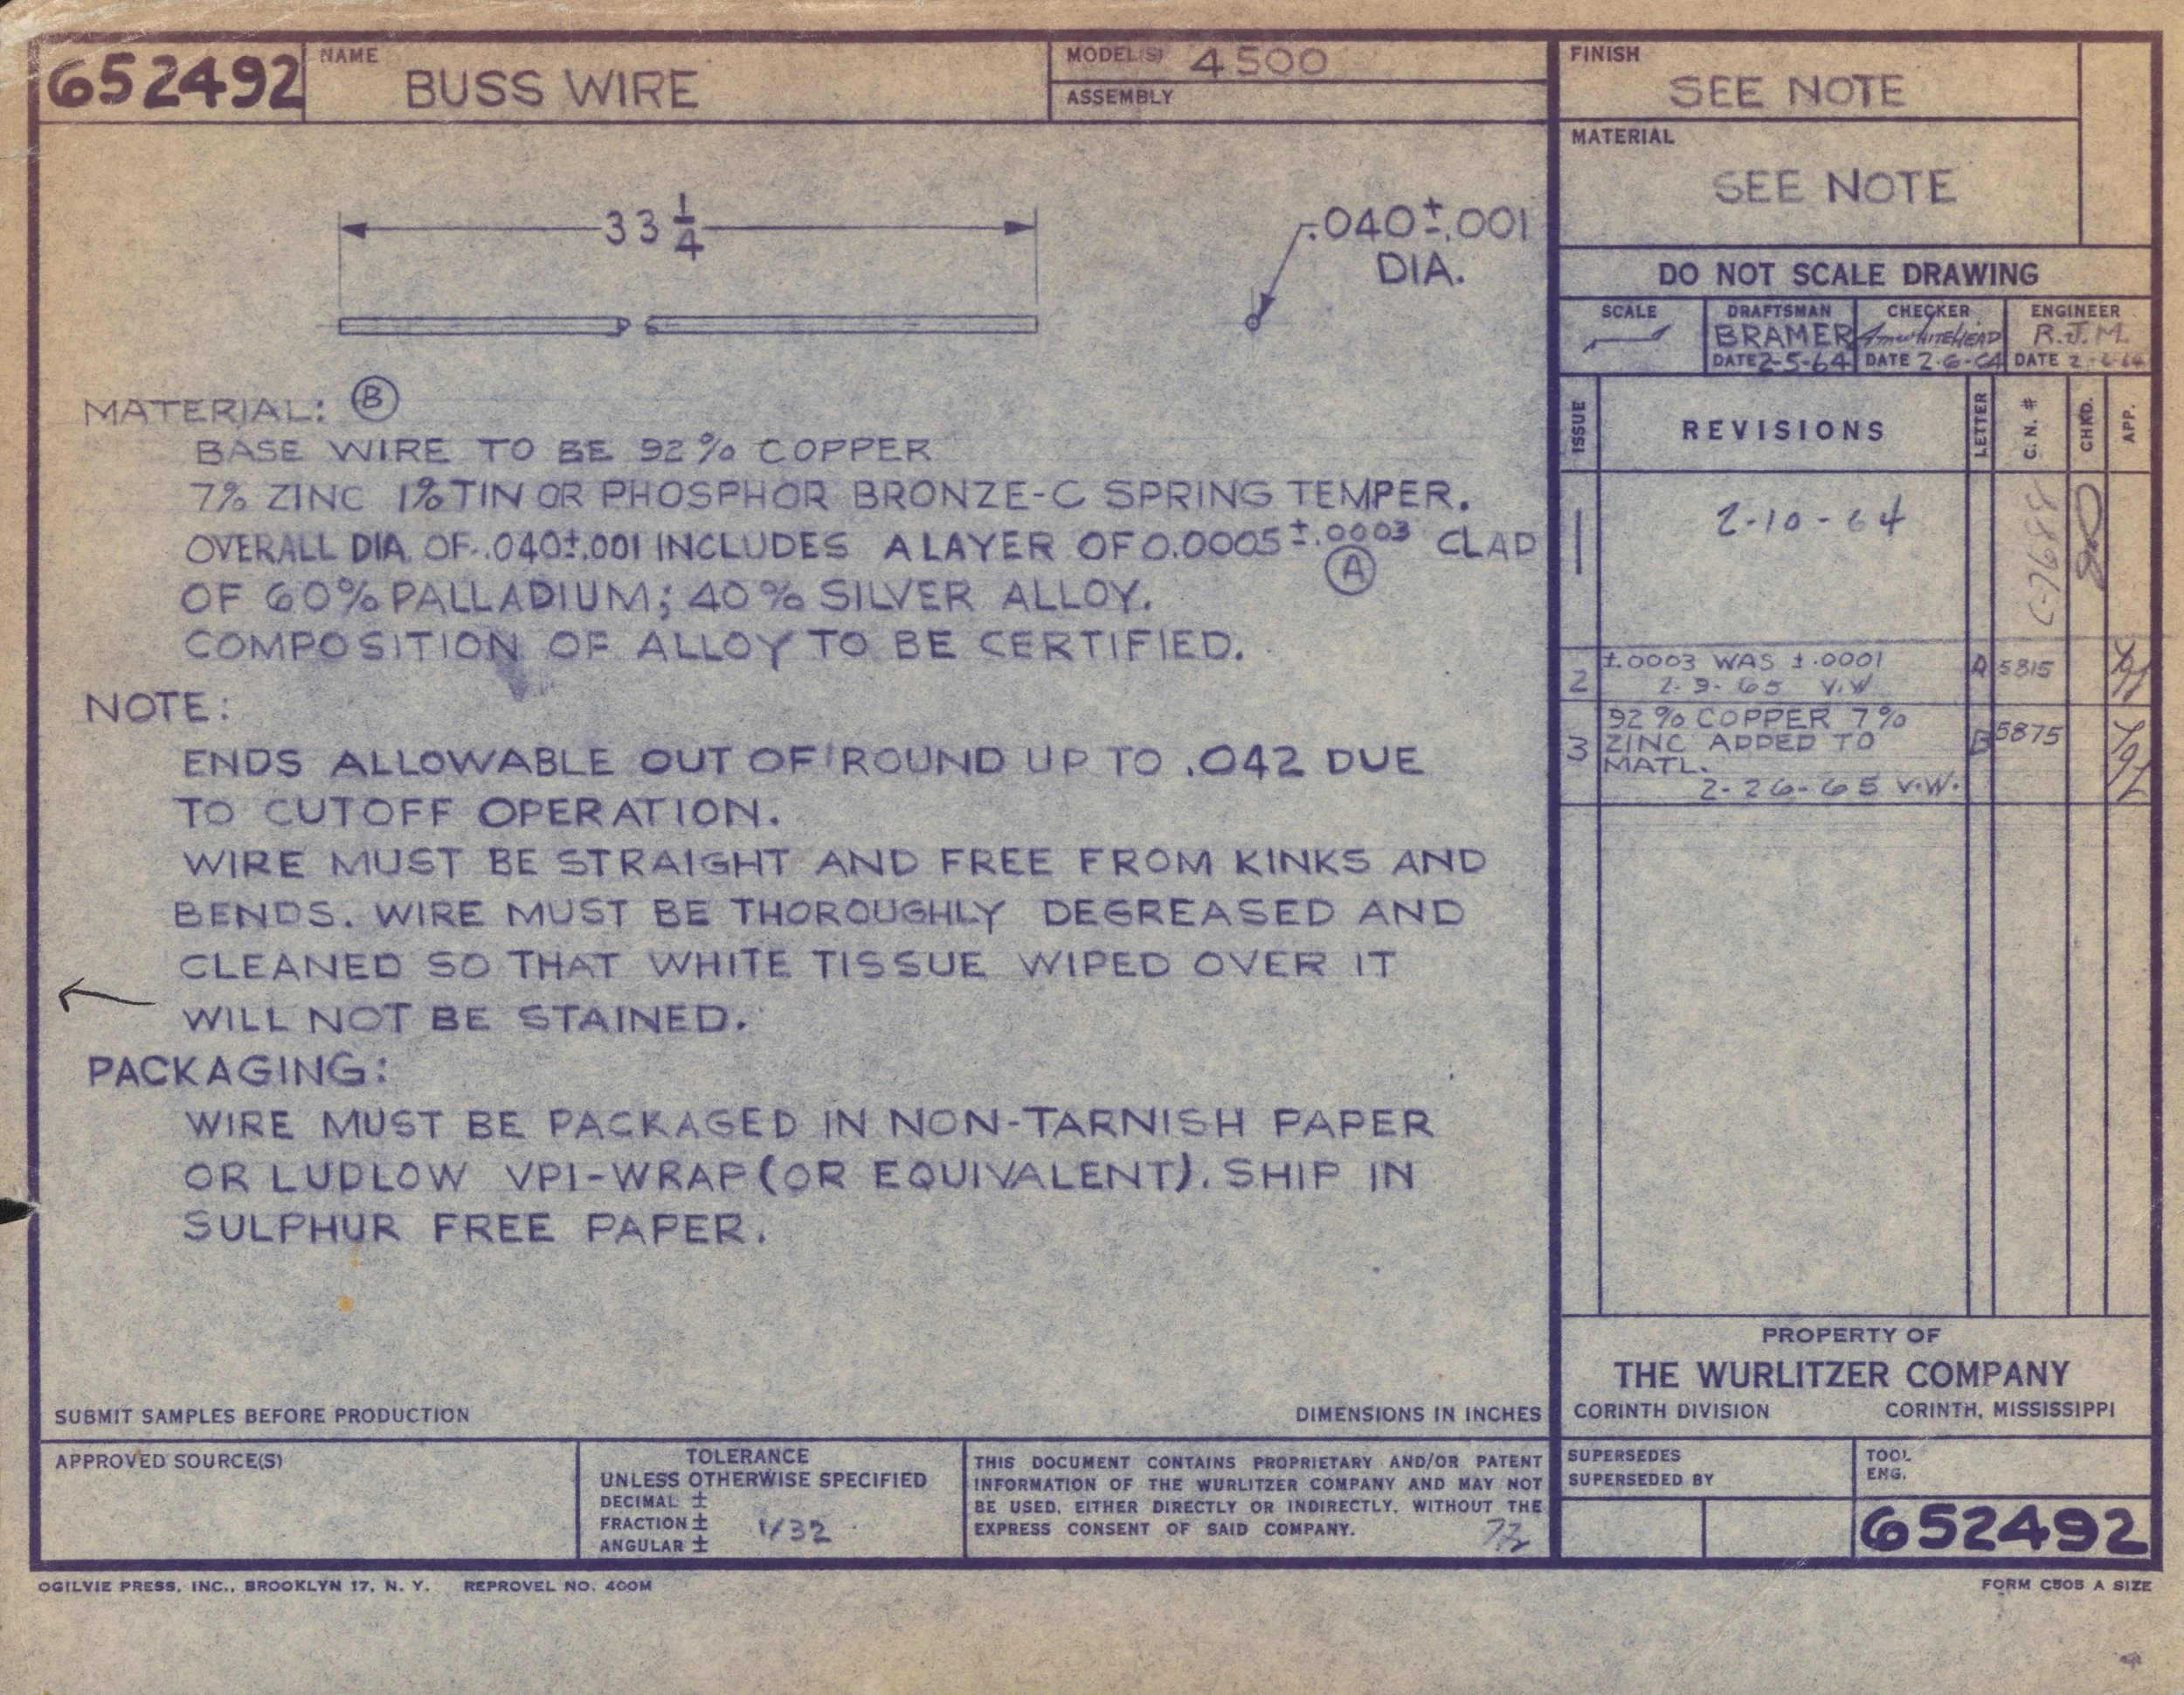 652492
NAME
BUSS WIRE
MODEL(S) 4500
ASSEMBLY
FINISH
SEE NOTE
MATERIAL
SEE NOTE
33 1/4
.040±.001
DIA.
DO NOT SCALE DRAWING
SCALE
DRAFTSMAN
BRAMER
DATE 2-5-64
CHECKER
WHITEHEAD
DATE 2-6-64
ENGINEER
R.J.M.
DATE 2-6-64
MATERIAL: B
BASE WIRE TO BE 92% COPPER
7% ZINC 1% TIN OR PHOSPHOR BRONZE-C SPRING TEMPER.
OVERALL DIA. OF .040±.001 INCLUDES A LAYER OF 0.0005±.0003 CLAD
A
OF 60% PALLADIUM; 40% SILVER ALLOY.
COMPOSITION OF ALLOY TO BE CERTIFIED.
NOTE:
ENDS ALLOWABLE OUT OF ROUND UP TO .042 DUE
TO CUTOFF OPERATION.
WIRE MUST BE STRAIGHT AND FREE FROM KINKS AND
BENDS. WIRE MUST BE THOROUGHLY DEGREASED AND
CLEANED SO THAT WHITE TISSUE WIPED OVER IT
WILL NOT BE STAINED.
PACKAGING:
WIRE MUST BE PACKAGED IN NON-TARNISH PAPER
OR LUDLOW VPI-WRAP (OR EQUIVALENT). SHIP IN
SULPHUR FREE PAPER.
ISSUE
REVISIONS
LETTER
C. N. #
CHKD.
APP.
1
2-10-64
C-7688
2
±.0003 WAS ±.0001
2-9-65 V.W
A
5815
3
92% COPPER 7%
ZINC ADDED TO
MATL.
2-26-65 V.W.
B
5875
SUBMIT SAMPLES BEFORE PRODUCTION
DIMENSIONS IN INCHES
PROPERTY OF
THE WURLITZER COMPANY
CORINTH DIVISION
CORINTH, MISSISSIPPI
APPROVED SOURCE(S)
TOLERANCE
UNLESS OTHERWISE SPECIFIED
DECIMAL ±
FRACTION ± 1/32
ANGULAR ±
THIS DOCUMENT CONTAINS PROPRIETARY AND/OR PATENT
INFORMATION OF THE WURLITZER COMPANY AND MAY NOT
BE USED, EITHER DIRECTLY OR INDIRECTLY, WITHOUT THE
EXPRESS CONSENT OF SAID COMPANY.
SUPERSEDES
SUPERSEDED BY
TOOL
ENG.
652492
OGILVIE PRESS, INC., BROOKLYN 17, N. Y. REPROVEL NO. 400M
FORM C505 A SIZE